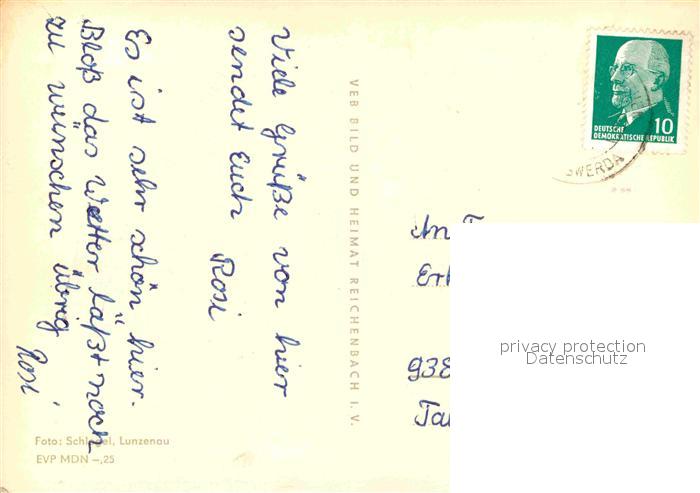 Viele Grüße von hier
sendet Euch Rosi
Es ist sehr schön hier.
Bloß das Wetter läßt noch
zu wünschen übrig
Rosi
VEB BILD UND HEIMAT REICHENBACH I. V.
DEUTSCHE
DEMOKRATISCHE REPUBLIK
10
SWERDA
An
938
privacy protection
Datenschutz
Foto: Schlegel, Lunzenau
EVP MDN –,25